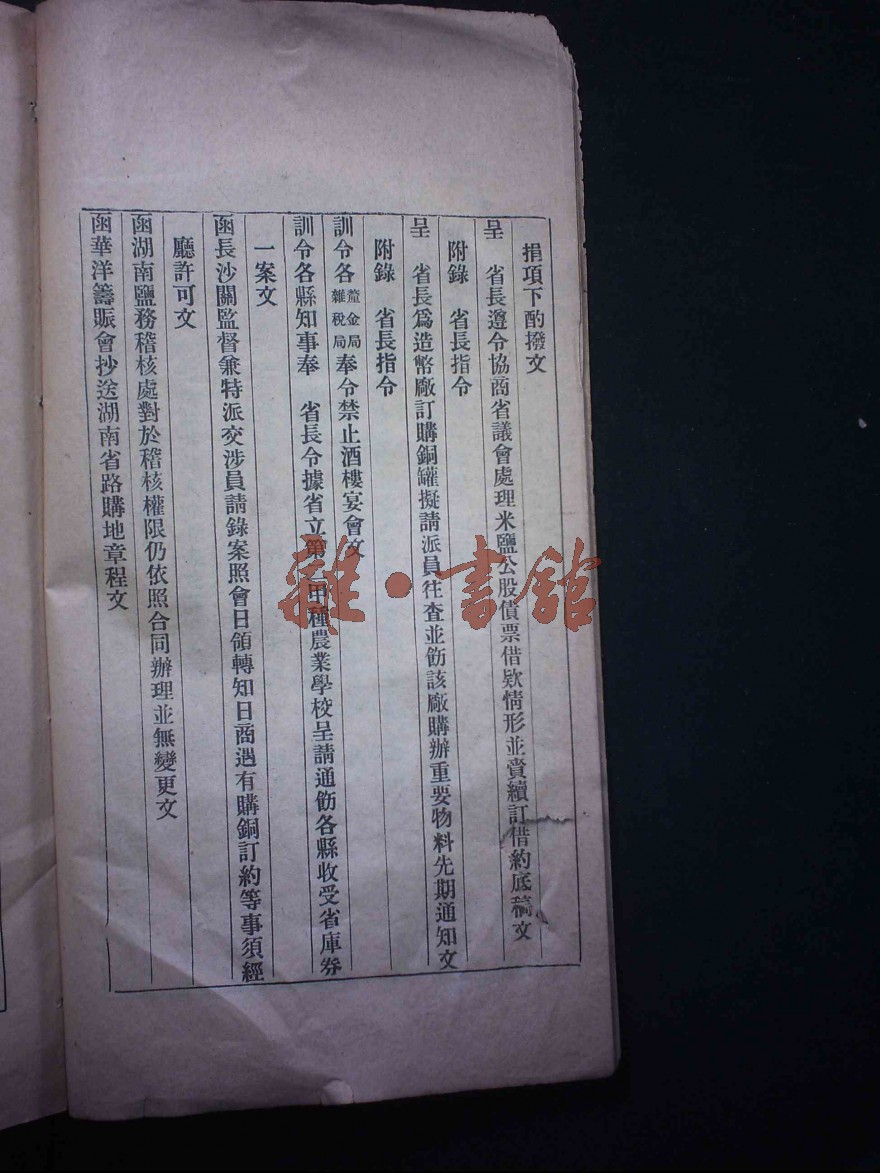 捐項下酌撥文
呈　省長遵令協商省議會處理米鹽公股債票借欵情形並賫續訂借約底稿文
附錄　省長指令
呈　省長爲造幣廠訂購銅罐擬請派員往查並飭該廠購辦重要物料先期通知文
附錄　省長指令
訓令各釐金局雜稅局奉令禁止酒樓宴會文
訓令各縣知事奉　省長令據省立第甲種農業學校呈請通飭各縣收受省庫券
一案文
函長沙關監督兼特派交涉員請錄案照會日領轉知日商遇有購銅訂約等事須經
廳許可文
函湖南鹽務稽核處對於稽核權限仍依照合同辦理並無變更文
函華洋籌賑會抄送湖南省路購地章程文
雜·書館